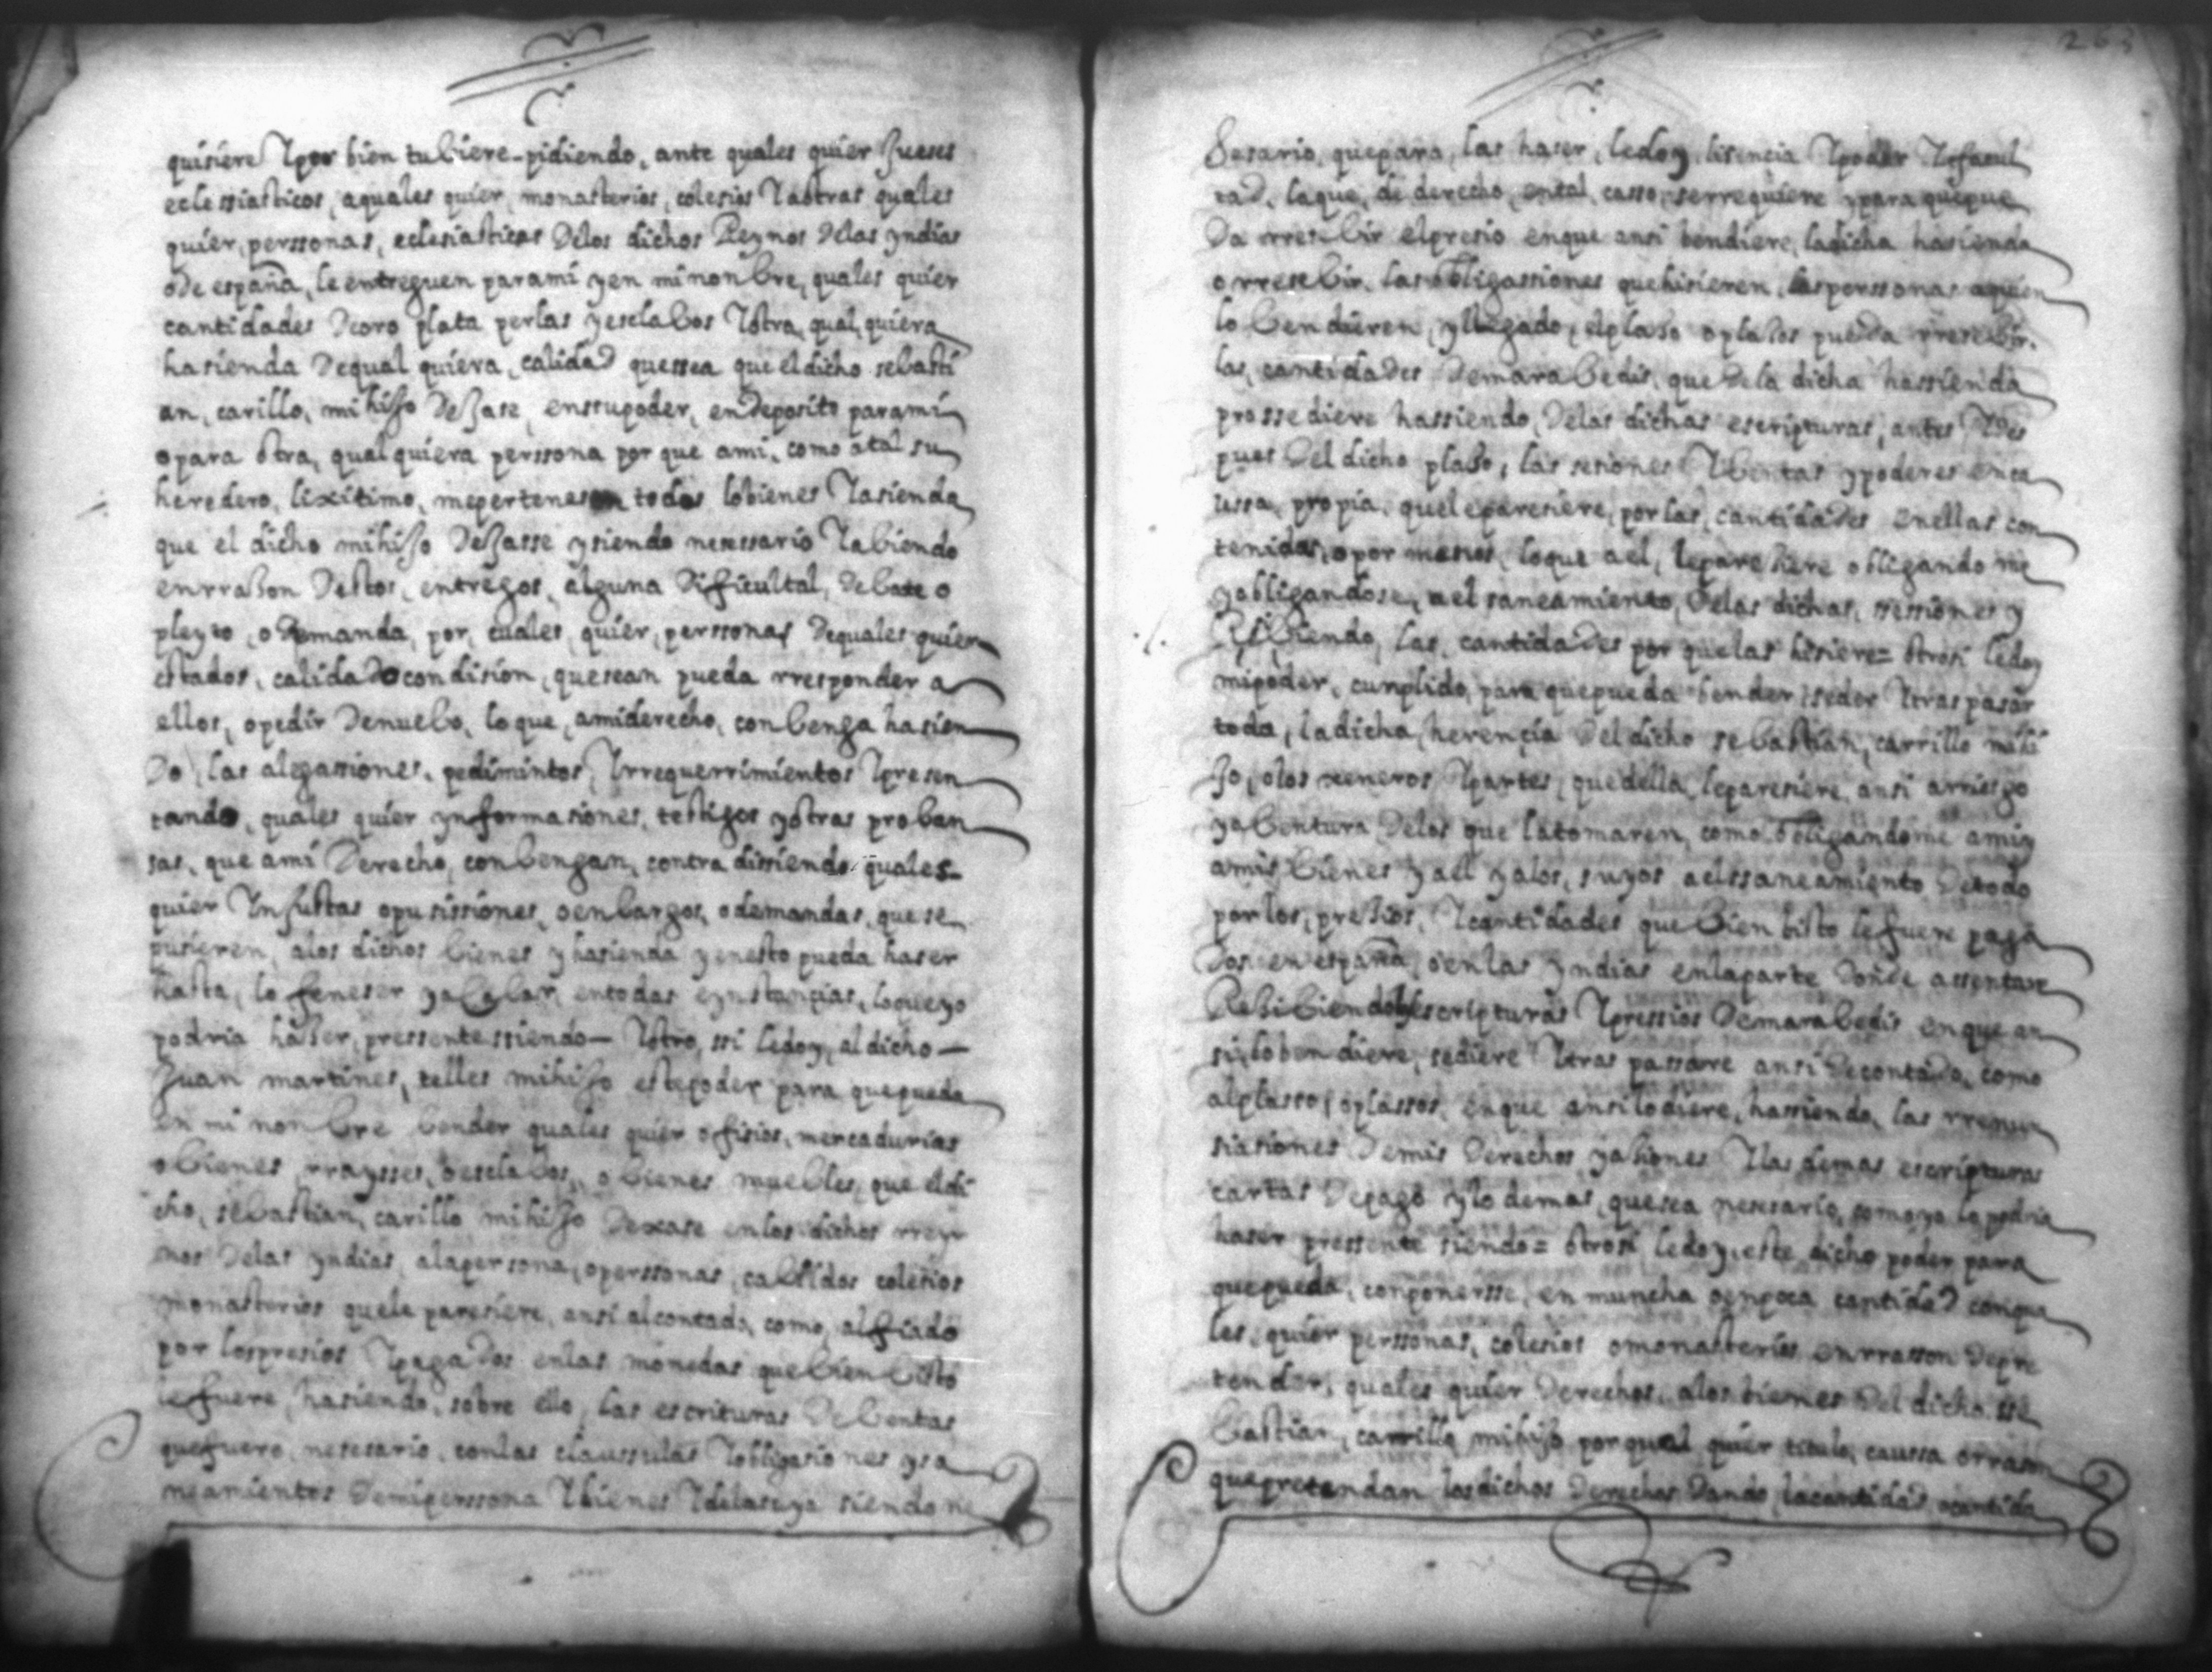 quisiere Y por bien tubiere - pidiendo, ante quales quier Jueses
eclessiasticos, aquales quier, monasterios, colesios Y aotras quales
quier, perssonas, eclesiasticas Delos dichos Reynos Delas yndias
ode españa, le entreguen parami yen minonbre, quales quier
cantidades Deoro plata perlas yesclabos Yotra, qual, quiera
hasienda Dequal quiera, calidad quessea que el dicho sebasti
an, carillo, mi hijjo Dejase, enssupoder, endeposito parami
opara otra, qualquiera perssona por que ami, como atal su
heredero, lixitimo, mepertenesen todos lobienes Yasienda
que el dicho mihijo Dejasse ysiendo nesessario Yabiendo
enrrason Destos, entregos, alguna Dificultal, debate o
pleyto, o Demanda, por, cuales, quier, perssonas Dequales quier
estados, calidad o condision, quesean pueda rresponder a
ellos, opedir Denuebo, loque, amiderecho, conbenga hasien
Do, las alegassiones, pedimintos, Yrrequerrimientos Ypresen
tando, quales quier ynformasiones, testigos yotras proban
sas, que ami Derecho, conbengan, contra dissiendo quales-
quier Ynjustas opusissiones, oenbargos, odemandas, que se
pusieren, alos dichos bienes yhasienda yenesto pueda haser
hasta, lo feneser yacabar, entodas eynstançias, loqueyo
podria haser, pressente ssiendo — Yotro, ssi ledoy, al dicho —
Juan martines, telles mihijo estepoder para quepueda
en mi nonbre bender quales quier ofisios, mercadurias
obienes, rraysses, oesclabos, o bienes muebles, que eldi
cho, sebastian, carillo mihijo Dexase enlos dichos rrey
nos Delas yndias, alapersona, operssonas, cabildos colesios
monasterios quele paresiere, ansi alcontado, como, alfiado
por lospresios Ypagados enlas monedas que bien bisto
le fuere, hasiendo, sobre ello, las escrituras De bentas
quefuere, nesesario, conlas claussulas Yobligasiones ysa
neamientos Demiperssona Ybienes Ydelasuya siendo ne
sesario, quepara, las haser, ledoy, lisencia Ypoder Yfacul
tad, laque, de derecho, ental, casso, serrequiere ypara quepue
Da rresebir elpresio enque ansi bendiere, ladicha hasienda
o rresebir, las obligassiones quehisieren, las perssonas aquien
lo bendieren, yllegado, elplaso oplasos pueda rresebir,
las, cantidades Demarabedis, que Dela dicha hassienda
prossediere hassiendo, Delas dichas escripturas, antes Ydes
pues Del dicho plaso, las sesiones Ybentas ypoderes enca
ussa, propia, queleparesiere, por las, cantidades enellas con
tenidas, opor menos, loque ael, lepareshere obligando me
yobligandose, ael saneamiento, Delas dichas, sessiones y
Resibiendo, las, cantidades por quelas hisiere = otrosi ledoy
mipoder, cunplido, para quepueda bender, seder Ytraspasar
toda, ladicha, herençia Del dicho sebastian, carrillo mihi
jo, olos xeneros Ypartes, quedella, leparesiere, ansi arriesgo
yabentura Delos que latomaren, como obligandome amiy
amis bienes yael yalos, suyos aelssaneamiento Detodo
por los, presios, Ycantidades que bien bisto le fuere paga
Dos en españa, oenlas yndias enlaparte Donde assentare
Resibiendo escripturas Ypressios Demarabedis enque an
si, lo bendiere, sediere Ytras passarre ansi Decontado, como
alplasso, oplassos, enque ansi lodiere, hassiendo, las rrenun
siasiones Demis Derechos yasiones Ylas demas escripturas
cartas Depago ylo demas, quesea nesesario, como yo lo podria
haser pressente siendo = otrosi ledoy, este, dicho poder para
quepueda, conponersse, en muncha oenpoca cantidad conqua
les, quier perssonas, colesios omonasterios enrrasson Depre
tender, quales quier Derechos, alos bienes Del dicho se
bastian, carrillo mihijo por qual quier titulo, caussa orrason
quepretendan losdichos Derechos Dando, lacantidad, ocantida